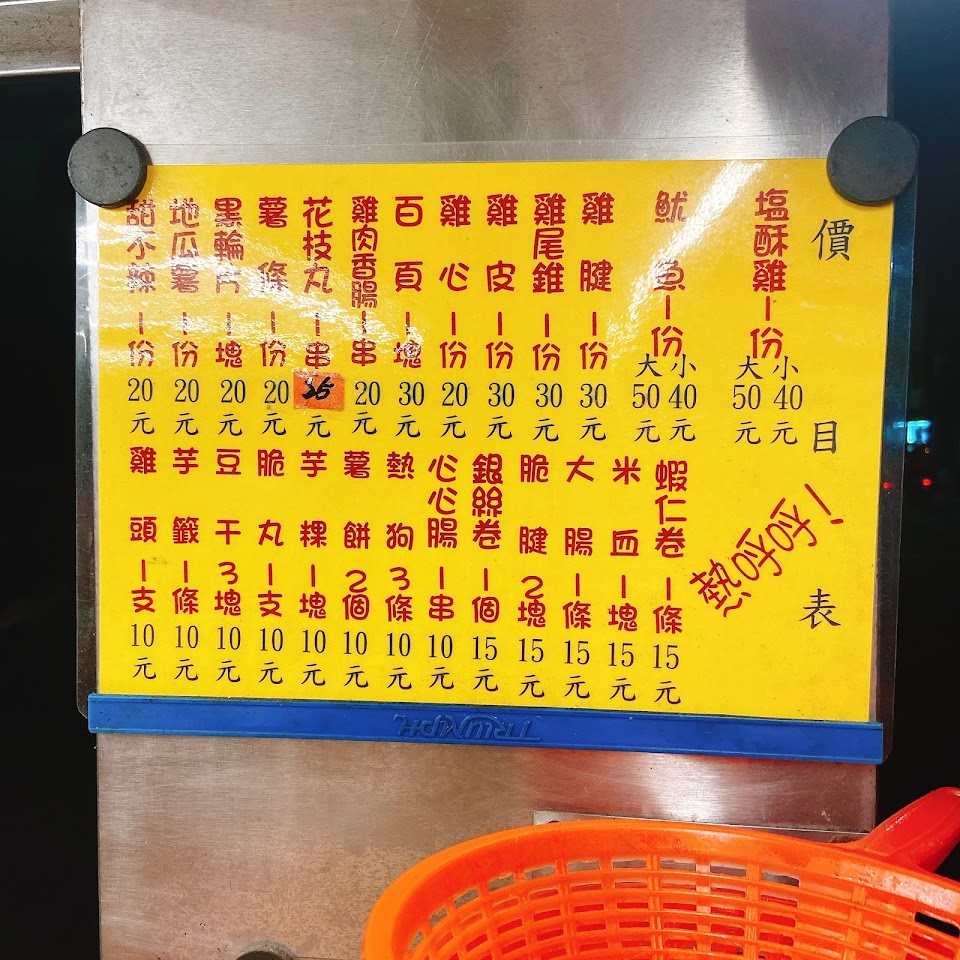 價目表
塩酥雞1份 大50元 小40元
魷魚1份 大50元 小40元
雞腱1份30元
雞尾錐1份30元
雞皮1份30元
雞心1份20元
百頁1塊30元
雞肉香腸1串20元
花枝丸1串25元
薯條1份20元
黑輪片1塊20元
地瓜薯1份20元
甜小辣1份20元
熱呼呼!
蝦仁卷1條15元
米血1塊15元
大腸1條15元
脆腱2塊15元
銀絲卷1個15元
心心腸1串10元
熱狗3條10元
薯餅2個10元
芋粿1塊10元
脆丸1支10元
豆干3塊10元
芋籤1條10元
雞頭1支10元
TRIUMPH